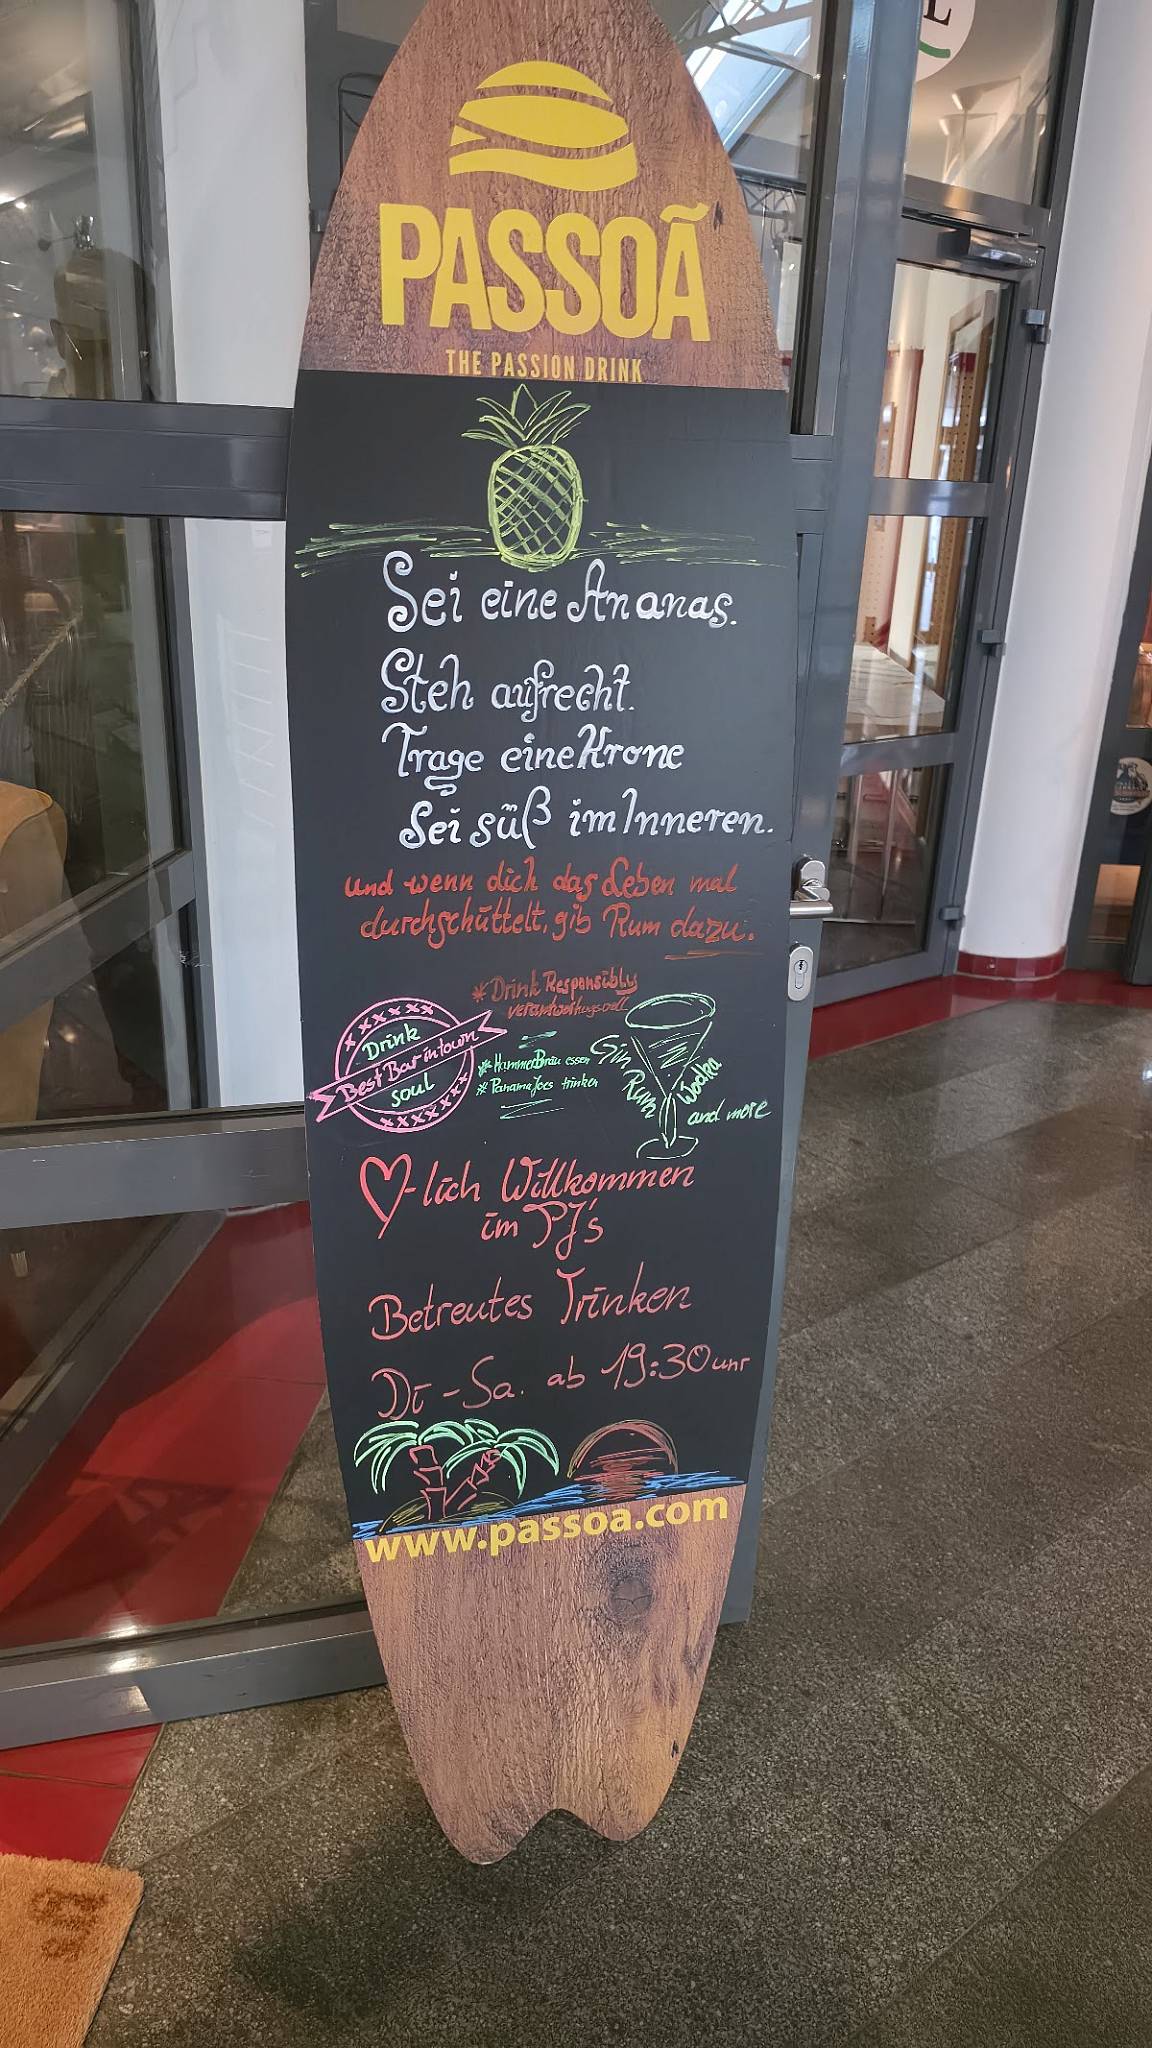 PASSOÃ
THE PASSION DRINK
Sei eine Ananas.
Steh aufrecht.
Trage eine Krone
Sei süß im Inneren.
und wenn dich das Leben mal
durchschüttelt, gib Rum dazu.
*Drink Responsibly
verantwortungsvoll
Drink
Best Bar in town
soul
*HammerBräu essen
*PanamaJoes trinken
Gin
Rum
Wodka
and more
♡-lich Willkommen
im PJ's
Betreutes Trinken
Di - Sa. ab 19:30 uhr
www.passoa.com